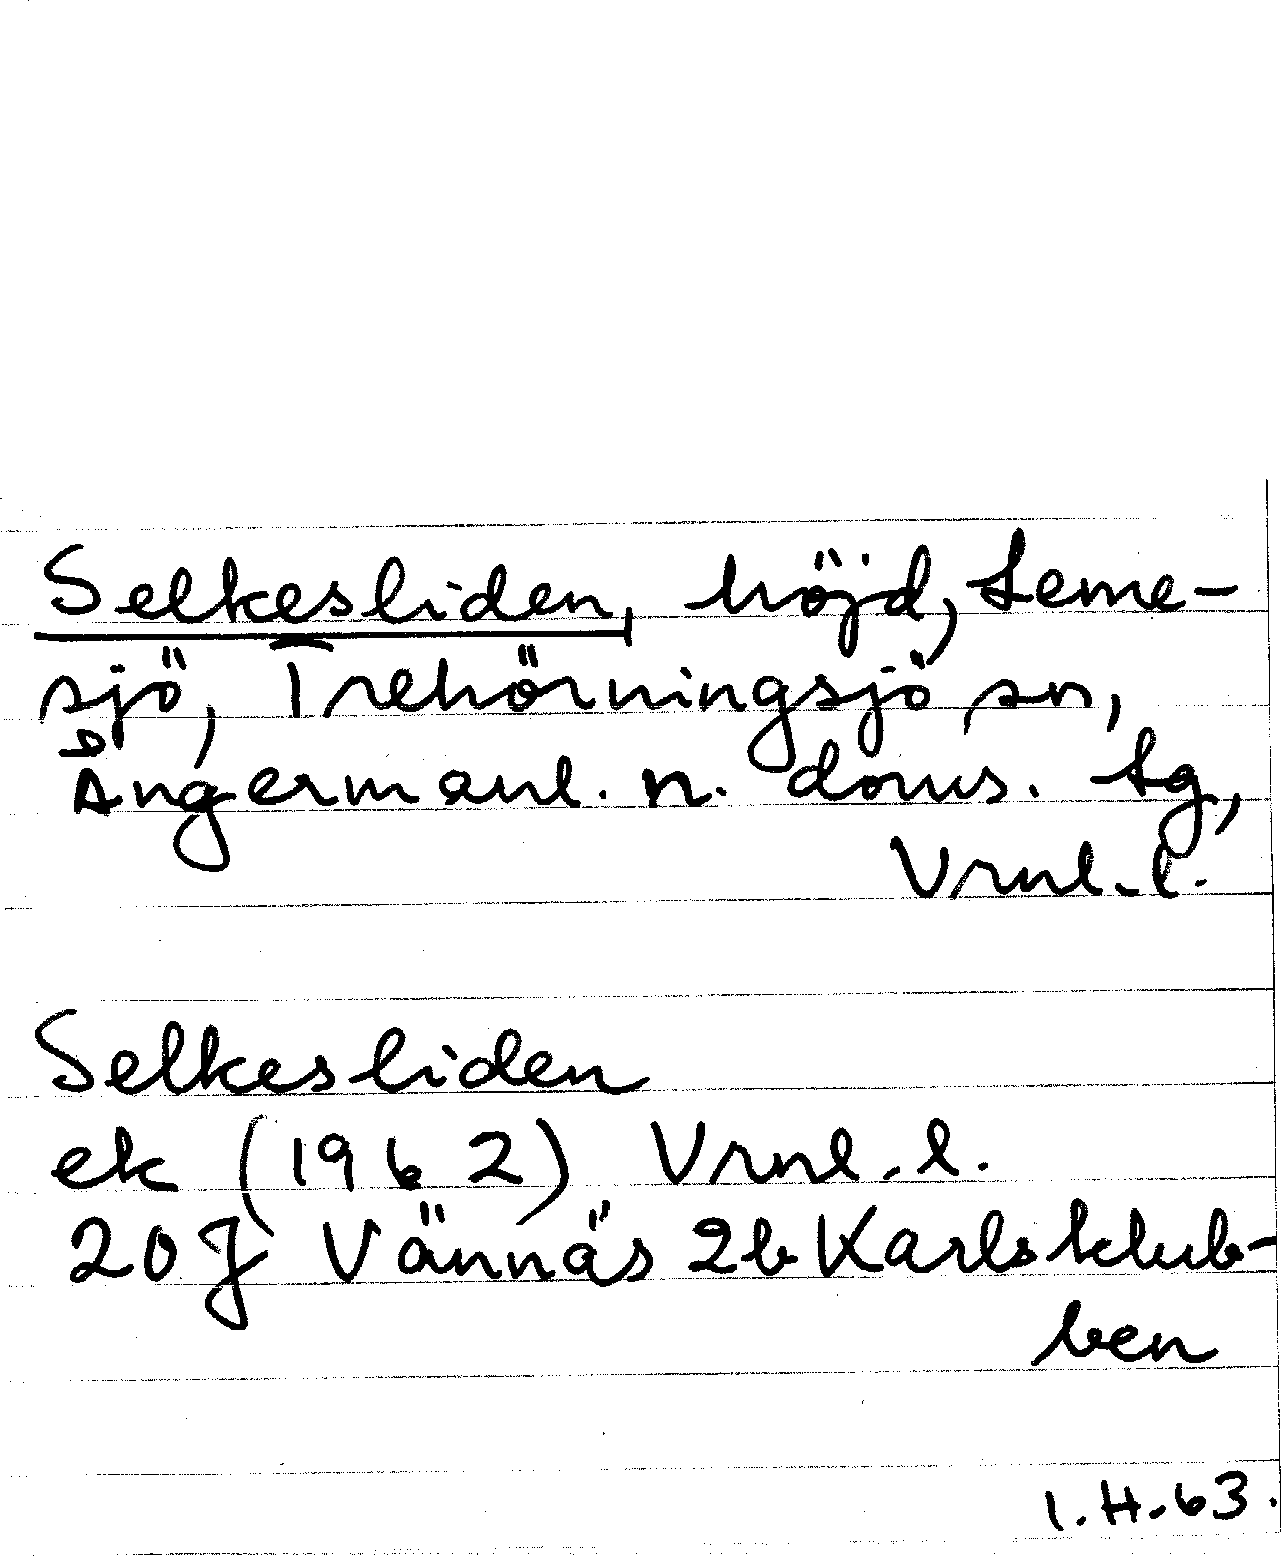 Selkesliden, höjd, Leme-
sjö, Trehörningsjö sn,
Ångermanl. n. doms. tg,
Vrnl. l.
Selkesliden
ek (1962) Vrnl. l.
20 J Vännäs 2b Karlsklub-
ben
I.H. 63.